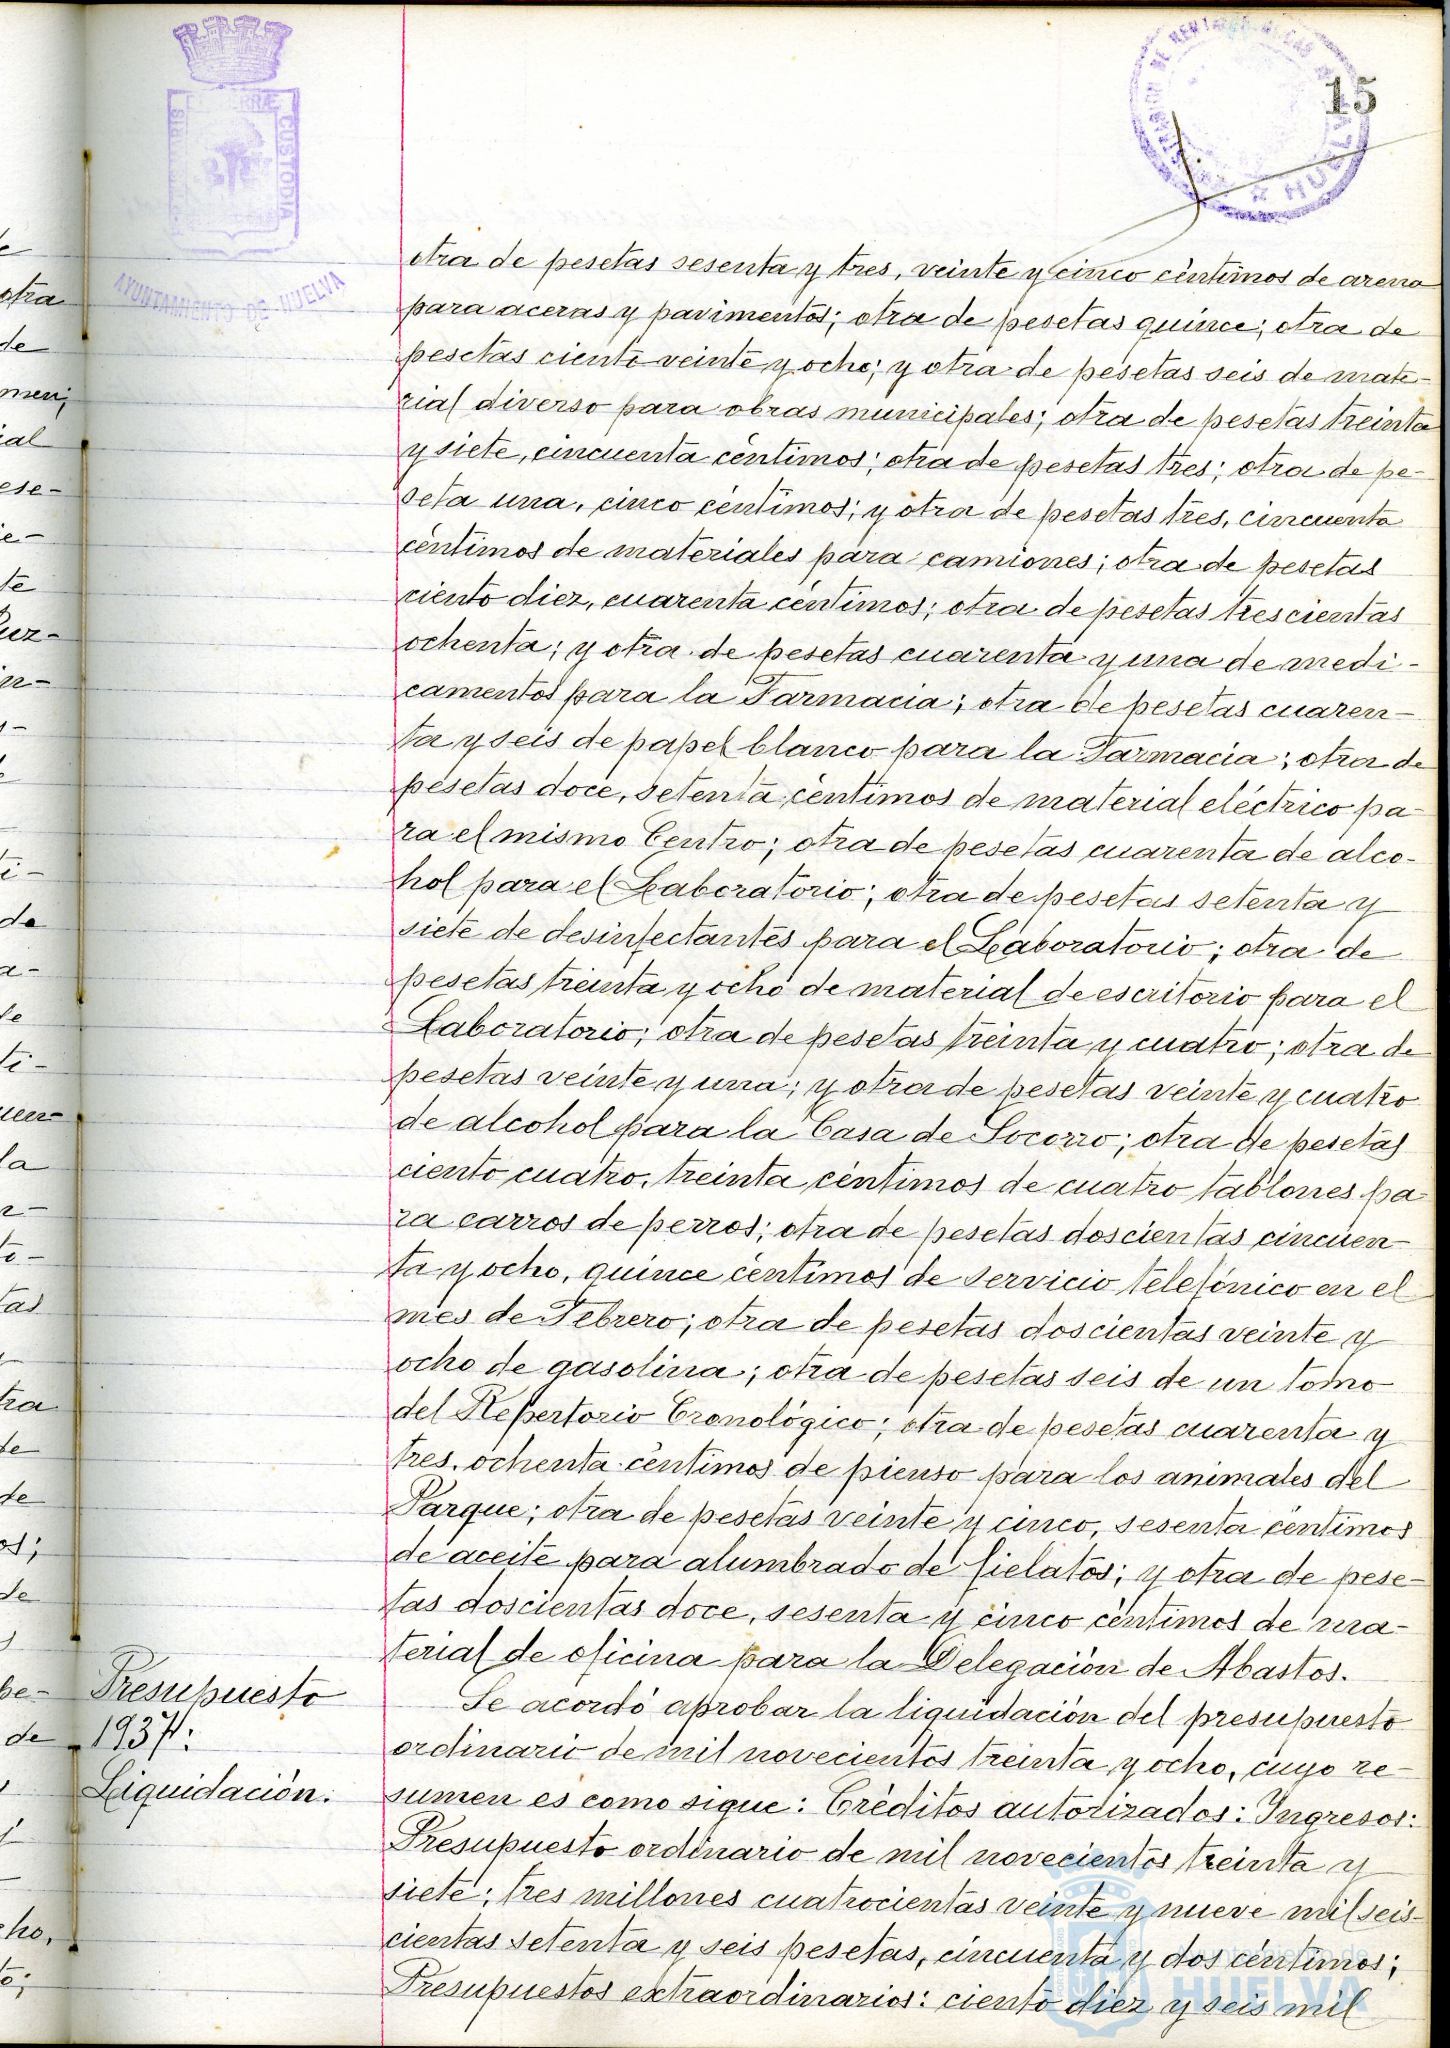 15
AYUNTAMIENTO DE HUELVA
CUSTODIA
HUELVA
otra de pesetas sesenta y tres, veinte y cinco céntimos de arena
para aceras y pavimentos; otra de pesetas quince; otra de
pesetas ciento veinte y ocho; y otra de pesetas seis de mate-
rial diverso para obras municipales; otra de pesetas treinta
y siete, cincuenta céntimos; otra de pesetas tres; otra de pe-
seta una, cinco céntimos; y otra de pesetas tres, cincuenta
céntimos de materiales para camiones; otra de pesetas
ciento diez, cuarenta céntimos; otra de pesetas trescientas
ochenta; y otra de pesetas cuarenta y una de medi-
camentos para la Farmacia; otra de pesetas cuaren-
ta y seis de papel blanco para la Farmacia; otra de
pesetas doce, setenta céntimos de material eléctrico pa-
ra el mismo Centro; otra de pesetas cuarenta de alco-
hol para el Laboratorio; otra de pesetas setenta y
siete de desinfectantes para el Laboratorio; otra de
pesetas treinta y ocho de material de escritorio para el
Laboratorio; otra de pesetas treinta y cuatro; otra de
pesetas veinte y una; y otra de pesetas veinte y cuatro
de alcohol para la Casa de Socorro; otra de pesetas
ciento cuatro, treinta céntimos de cuatro tablones pa
ra carros de perros; otra de pesetas doscientas cincuen-
ta y ocho, quince céntimos de servicio telefónico en el
mes de Febrero; otra de pesetas doscientas veinte y
ocho de gasolina; otra de pesetas seis de un tomo
del Repertorio Cronológico; otra de pesetas cuarenta y
tres, ochenta céntimos de pienso para los animales del
Parque; otra de pesetas veinte y cinco, sesenta céntimos
de aceite para alumbrado de fielatos; y otra de pese-
tas doscientas doce, sesenta y cinco céntimos de ma-
terial de oficina para la Delegación de Abastos.
Presupuesto
1937:
Liquidación:
Se acordó aprobar la liquidación del presupuesto
ordinario de mil novecientos treinta y ocho, cuyo re-
sumen es como sigue: Créditos autorizados: Ingresos:
Presupuesto ordinario de mil novecientos treinta y
siete; tres millones cuatrocientas veinte y nueve mil seis-
cientas setenta y seis pesetas, cincuenta y dos céntimos;
Presupuestos extraordinarios: ciento diez y seis mil
Ayuntamiento de
HUELVA